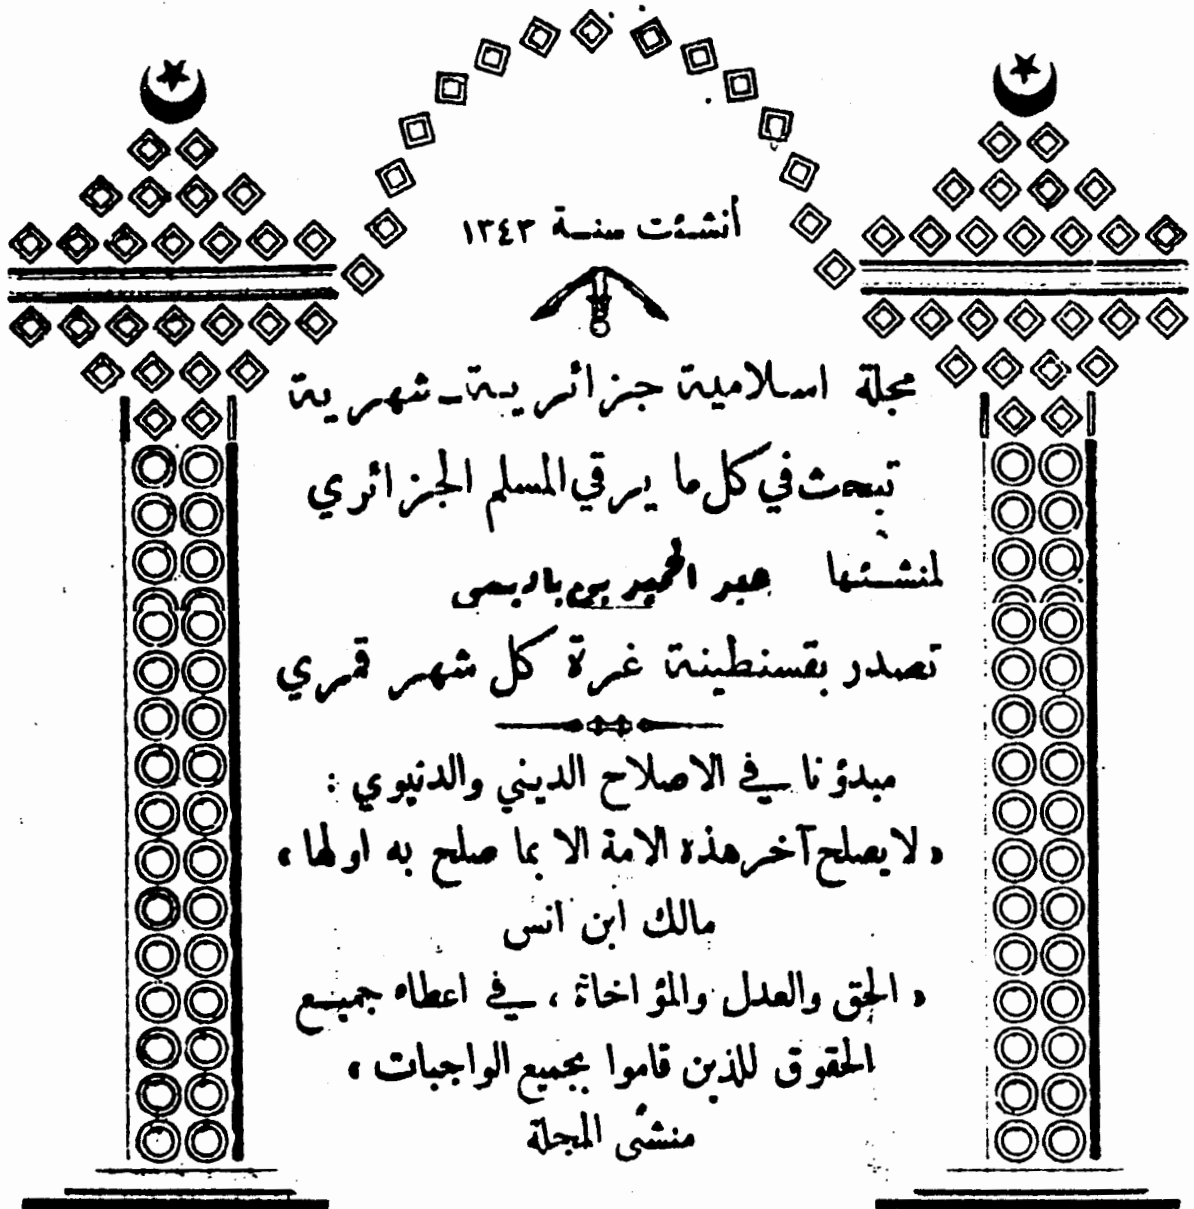 أنشئت سنة ١٣٤٣
مجلة اسلامية جزائرية - شهرية
تبحث في كل ما يرقي المسلم الجزائري
لمنشئها عبد الحميد بن باديس
تصدر بقسنطينة غرة كل شهر قمري
مبدؤنا في الاصلاح الديني والدنيوي :
« لا يصلح آخر هذه الامة الا بما صلح به اولها »
مالك ابن انس
« الحق والعدل والمؤاخاة ، في اعطاء جميع
الحقوق للذين قاموا بجميع الواجبات »
منشئ المجلة